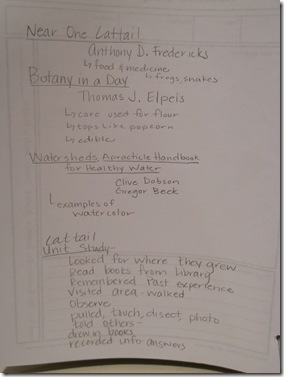 Near One Cattail
Anthony D. Fredericks
↳ food & medicine
↳ frogs, snakes
Botany in a Day
Thomas J. Elpels
↳ core used for flour
↳ tops like popcorn
↳ edible
Watersheds, A practicle Handbook
for Healthy Water
Clive Dobson
Gregor Beck
↳ examples of
water color
Cattail
Unit Study-
Looked for where they grew
Read books from Library
Remembered Past experience
Visited area - walked
Observe
pulled, touch, disect, photo
told others-
drew in books
recorded info answers